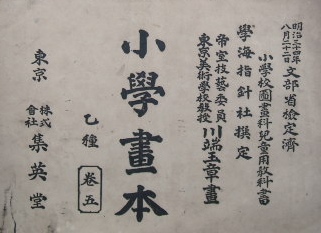 明治三十四年
八月二十二日
文部省檢定濟
小學校圖畫科兒童用教科書
學海指針社撰定
帝室技藝委員
東京美術學校教授
川端玉章畫
小學畫本
乙種
卷五
東京
株式
會社
集英堂